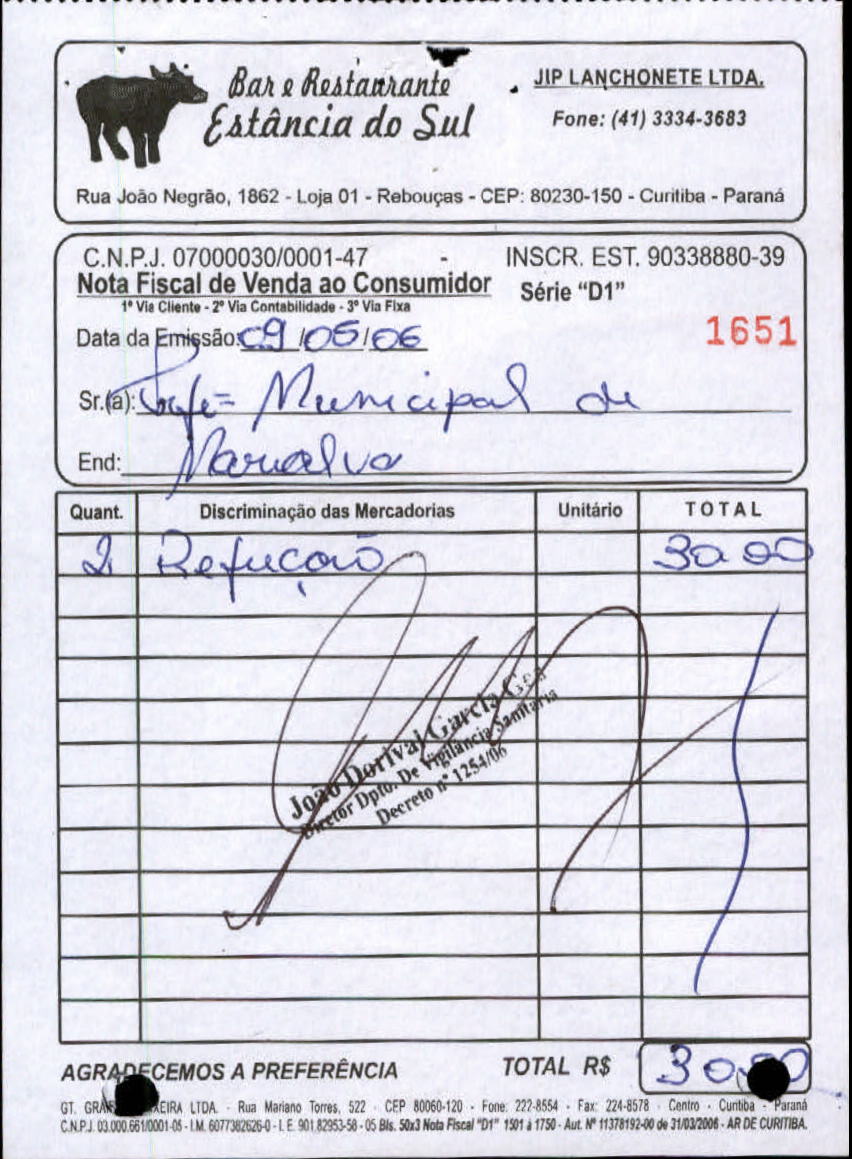 Bar e Restaurante
Estância do Sul
JIP LANCHONETE LTDA.
Fone: (41) 3334-3683
Rua João Negrão, 1862 - Loja 01 - Rebouças - CEP: 80230-150 - Curitiba - Paraná
C.N.P.J. 07000030/0001-47 - INSCR. EST. 90338880-39
Nota Fiscal de Venda ao Consumidor Série "D1"
1ª Via Cliente - 2ª Via Contabilidade - 3ª Via Fixa
Data da Emissão: 09/05/06 1651
Sr.(a): Pref= Municipal de
End: Marialva
Quant. Discriminação das Mercadorias Unitário TOTAL
2 Refeição 30,00
João Dorival Garcia
Diretor Dpto. De Vigilância Sanitária
Decreto nº 1254/06
AGRADECEMOS A PREFERÊNCIA TOTAL R$ 30,00
GT. LTDA. - Rua Mariano Torres, 522 - CEP 80060-120 - Fone: 222-8554 - Fax: 224-8578 - Centro - Curitiba - Paraná
C.N.P.J. 03.000.661/0001-05 - I.M. 6077382626-0 - I. E. 901.82953-58 - 05 Bls. 50x3 Nota Fiscal "D1" 1501 à 1750 - Aut. Nº 11378192-00 de 31/03/2006 - AR DE CURITIBA.